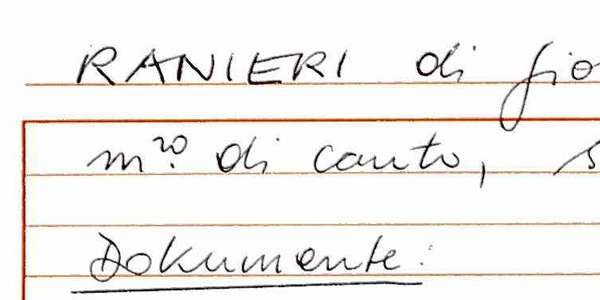 RANIERI di gio
m.ro di canto, s
Dokumente: